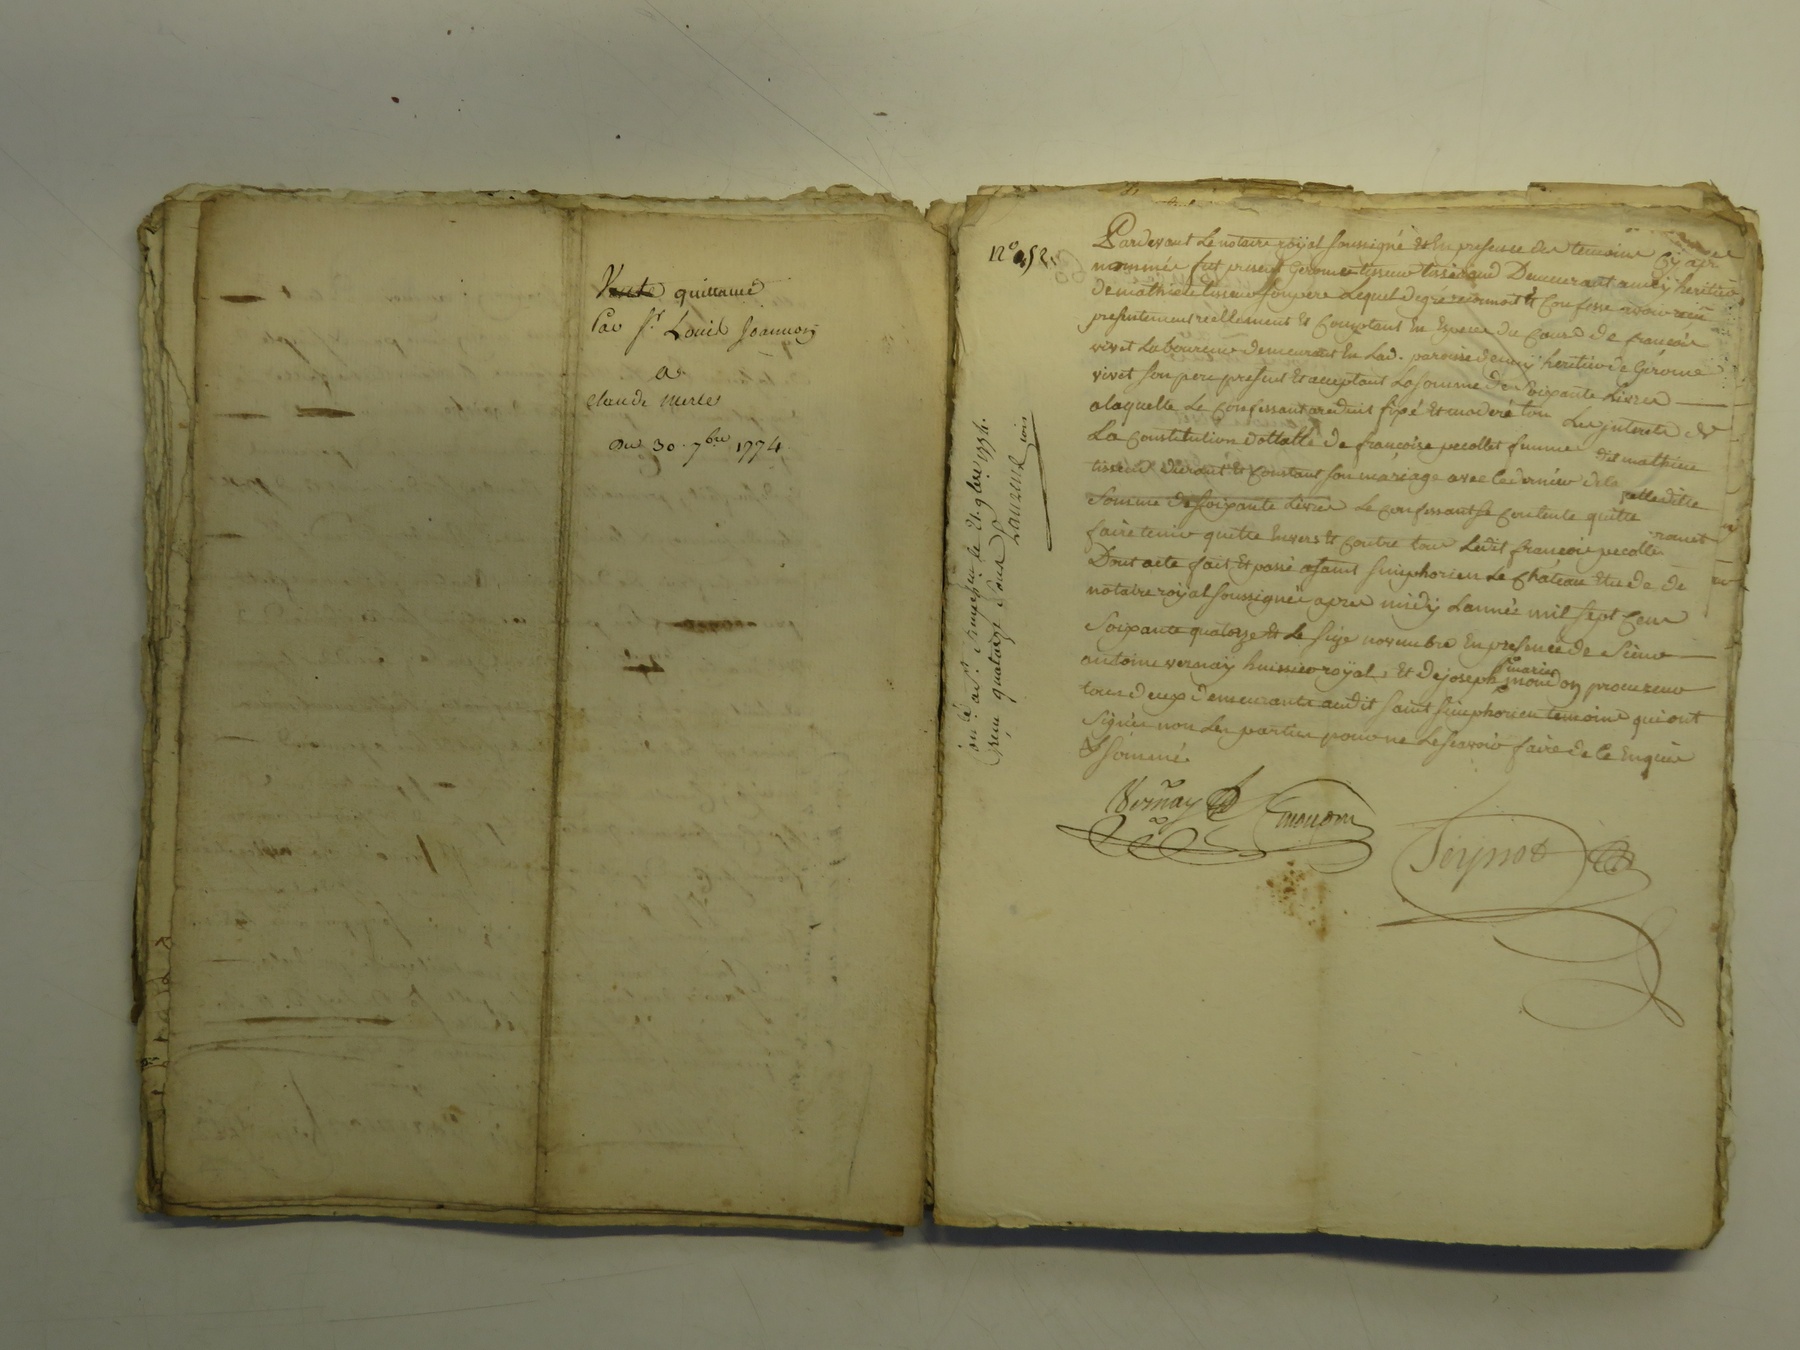 Vente quittance
Par Sr. Louis Joannon
A
Claude Merle
Du 30. 7bre 1774
N° 52.
Pardevant Le notaire royal soussigné et En presence des temoins cy apres
nommés fut present Gerome tisseur tisserand Demeurant a heritier
de mathieu tisseur son pere Lequel de gré reconnoit et Confesse avoir reçu
presentement reellement et Comptant En Espece du Cours de francois
vivet Laboureur demeurant En Lad. paroisse heritier de Gérome
vivet son pere present et acceptant La somme de Soixante Livres
a laquelle Le Confessant a reduit fixé et moderé tous Les interets de
La Constitution dottalle de françoise pecollet femme dud mathieu
tisseur durant et Constant son mariage avec Ce dernier de la
somme de soixante Livres Le Confessant se Contente quitte
faire tenir quitte Envers et Contre tous Ledit francois
Dont acte fait et passé a saint simphorien Le Château Etude de
notaire royal soussigné apres midy L'année mil sept Cens
Soixante quatorze et Le seize novembre En presence de sieurs
antoine vernay huissier royal, Et de joseph marie mondon procureur
tous deux demeurants audit saint simphorien temoins qui ont
signés non Les parties pour ne Le scavoir faire de Ce Enquis
& sommé.
Vernay mondon
Peyssot
le 21. 9bre 1774.
reçu quatorze sous
Laurent